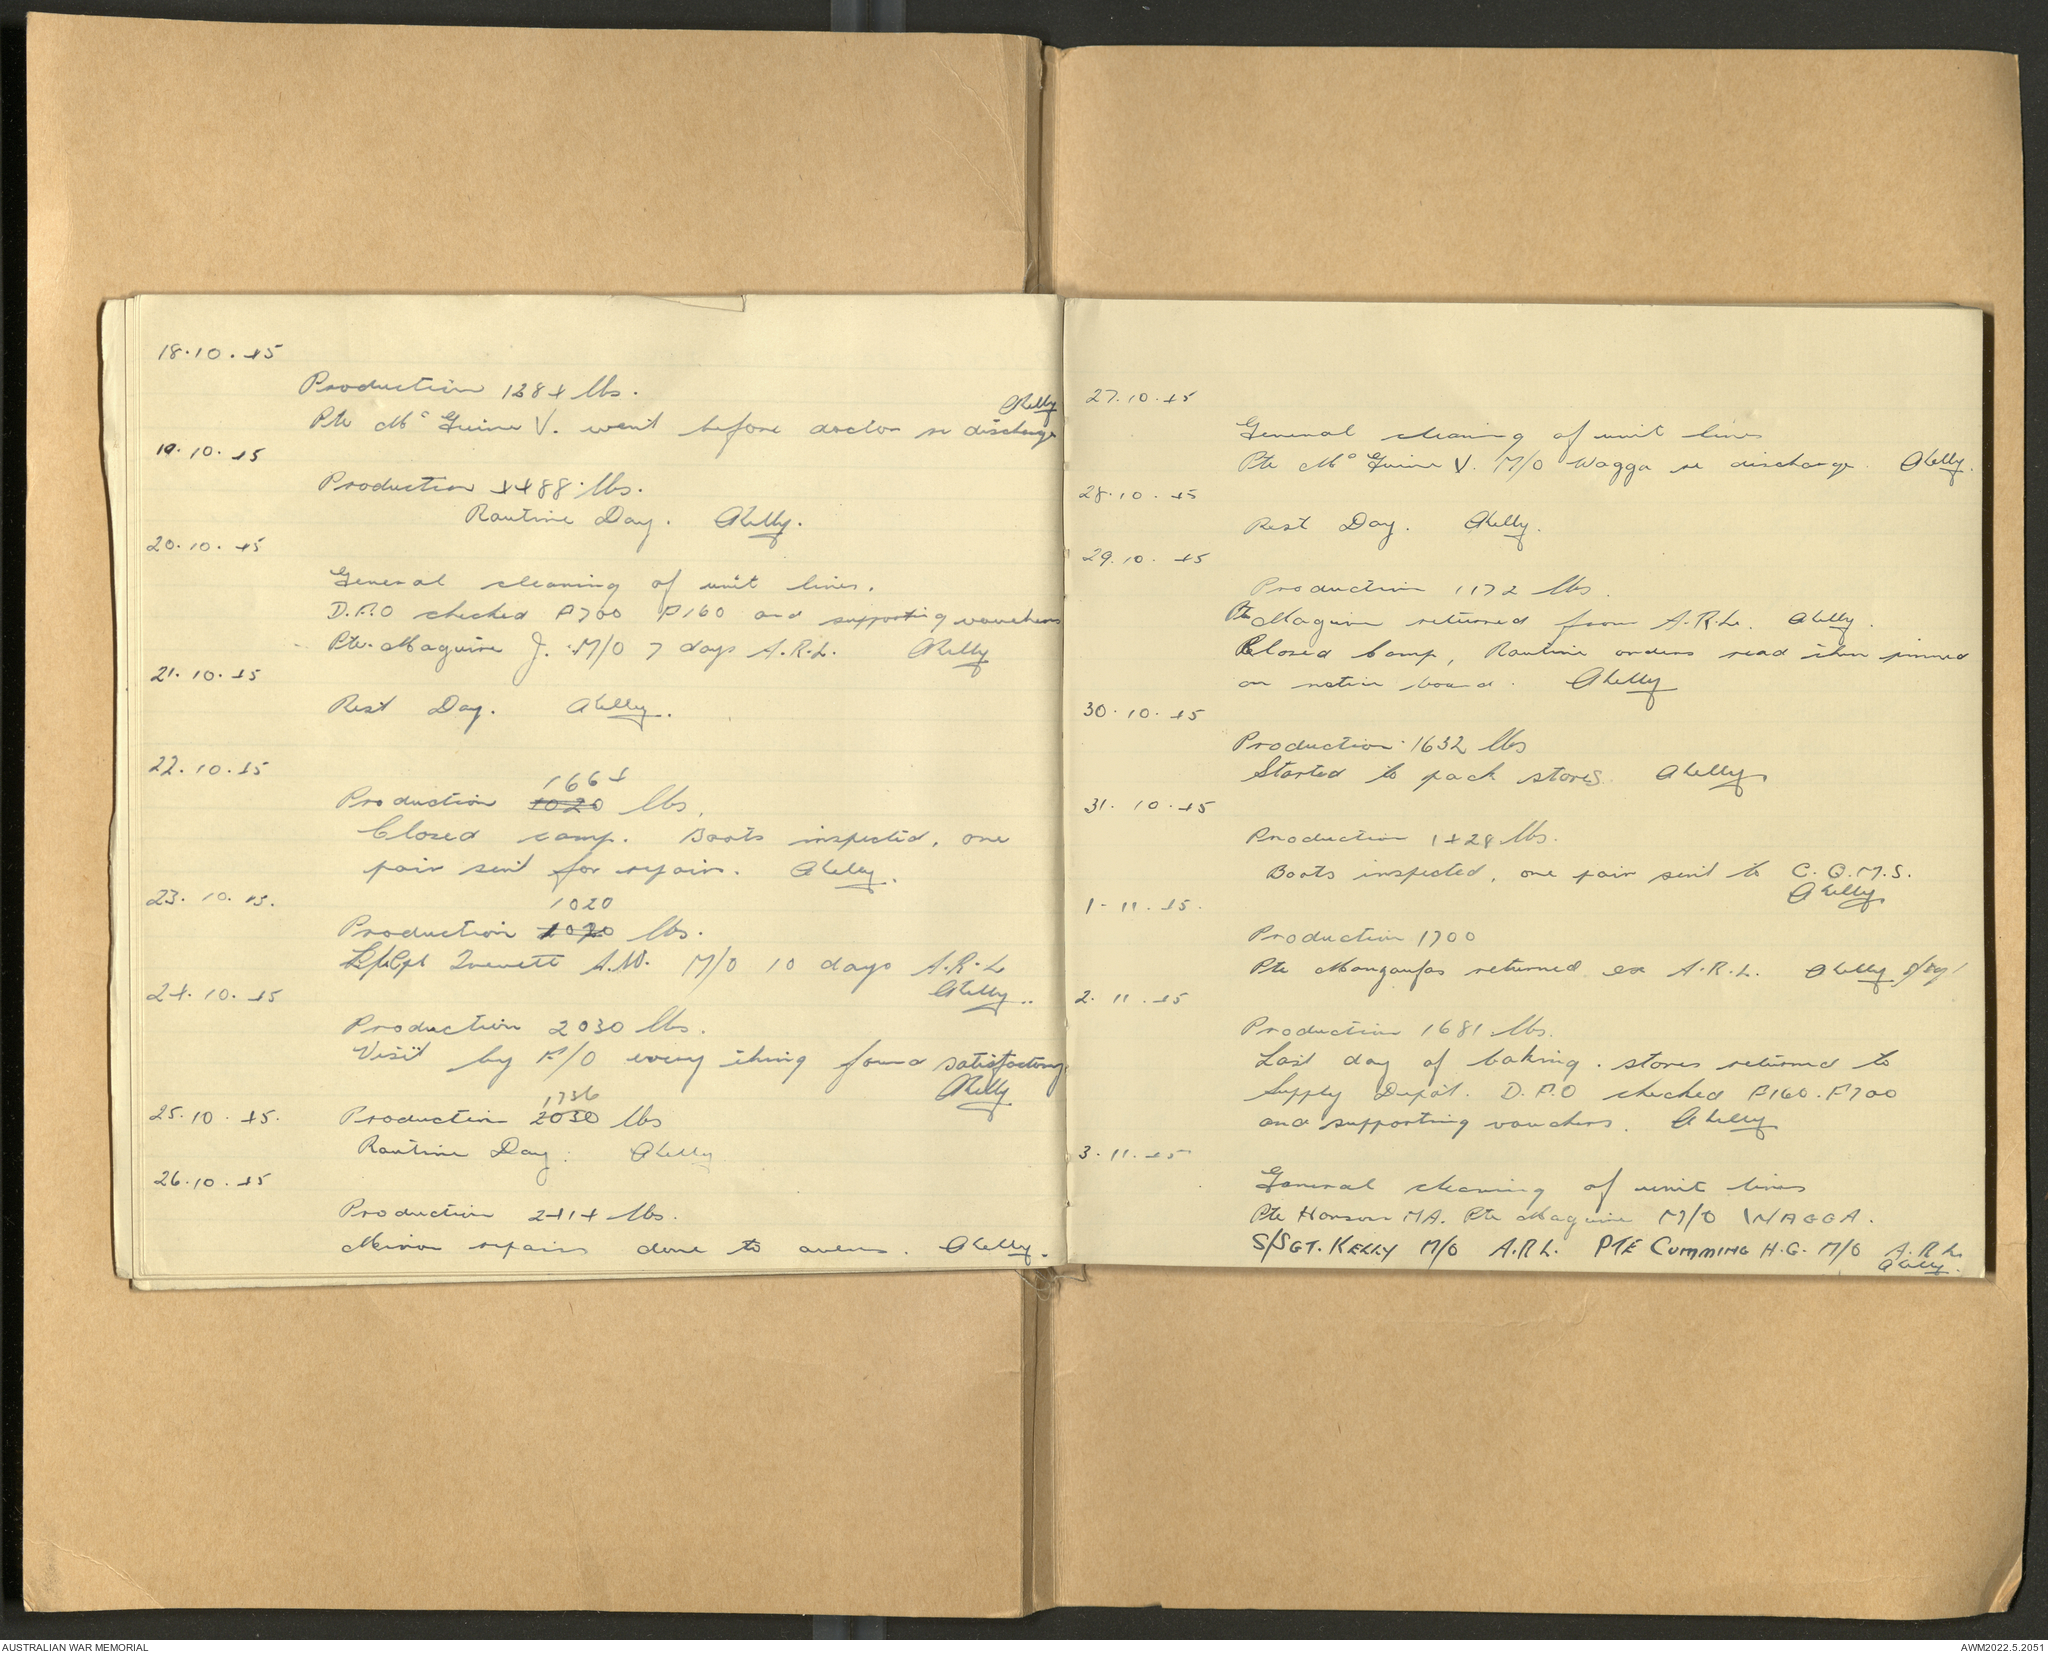 18.10.45
Production 1384 lbs.
AKelly
Pte McGuire V. went before doctor re discharge
19.10.45
Production 4488 lbs.
Routine Day. AKelly.
20.10.45
General cleaning of unit lines.
D.F.O checked F700 F160 and supporting vouchers
Pte. Maguire J. M/O 7 days A.R.L. AKelly
21.10.45
Rest Day. AKelly.
22.10.45
1664
Production 1020 lbs.
Closed camp. Boots inspected, one
pair sent for repairs. AKelly.
23.10.45.
1020
Production lbs.
L/Cpl Trevett A.W. M/O 10 days A.R.L
AKelly..
24.10.45
Production 2030 lbs.
Visit by F/O every thing found satisfactory
AKelly
1736
25.10.45. Production 2030 lbs
Routine Day. AKelly
26.10.45
Production 2414 lbs.
Minor repairs done to ovens. AKelly.
27.10.45
General cleaning of unit lines
Pte McGuire V. M/O Wagga re discharge. AKelly.
28.10.45
Rest Day. AKelly.
29.10.45
Production 1172 lbs.
Pte Maguire returned from A.R.L. AKelly.
Closed Camp, Routine orders read then pinned
on notice board. AKelly
30.10.45
Production 1632 lbs
Started to pack stores. AKelly
31.10.45
Production 1428 lbs.
Boots inspected, one pair sent to C.Q.M.S.
AKelly
1-11.45.
Production 1700
Pte returned ex A.R.L. AKelly S/Sgt
2.11.45
Production 1681 lbs.
Last day of baking. stores returned to
Supply Depot. D.F.O checked F160. F700
and supporting vouchers. AKelly
3.11.45
General cleaning of unit lines
Pte Hanson MA. Pte Maguire M/O WAGGA.
S/SGT. KELLY M/O A.R.L. PTE CUMMING H.G. M/O A.R.L.
AKelly.
AUSTRALIAN WAR MEMORIAL
AWM2022.5.2051